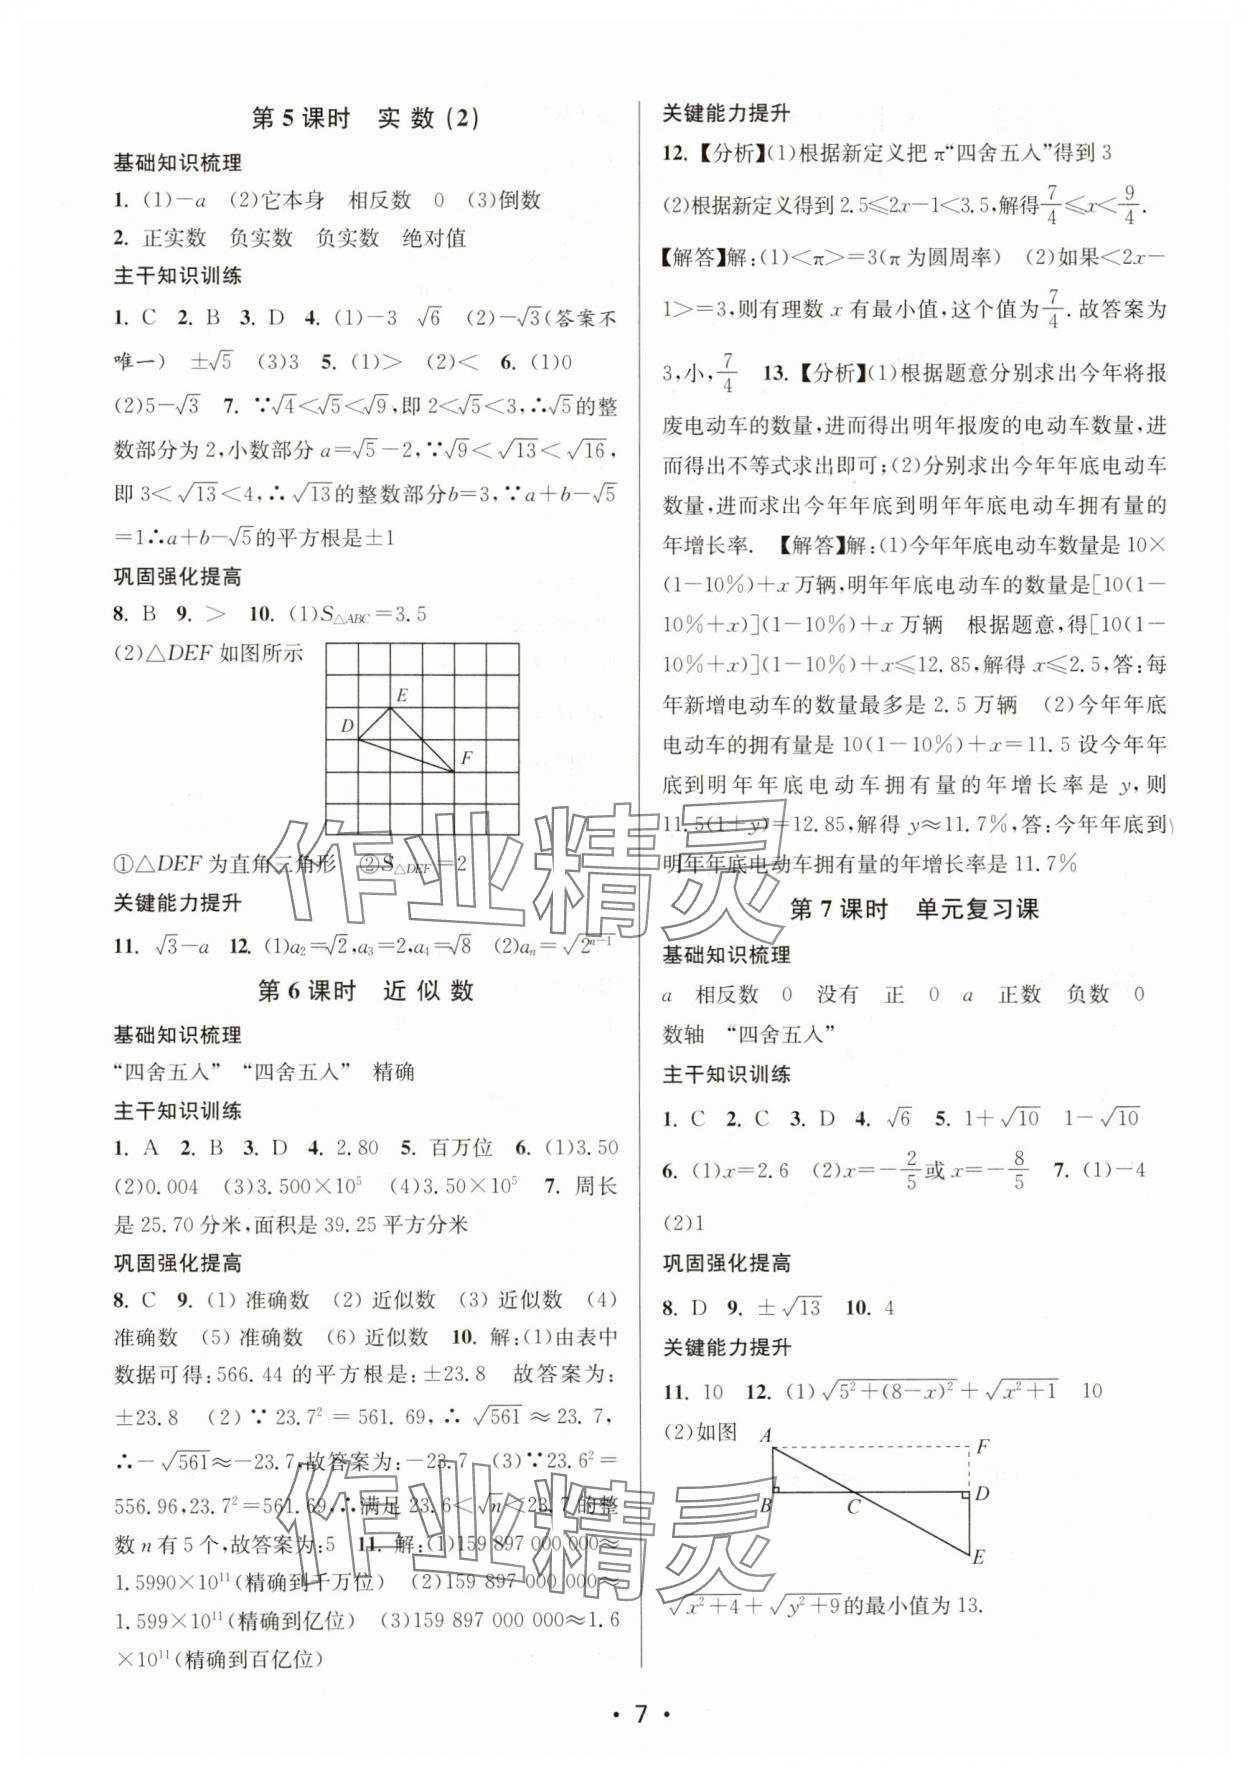 第5课时 实数(2)
基础知识梳理
1. (1)-a (2)它本身 相反数 0 (3)倒数
2. 正实数 负实数 负实数 绝对值
主干知识训练
1. C 2. B 3. D 4. (1)-3 √6 (2)-√3(答案不
唯一) ±√5 (3)3 5. (1)> (2)< 6. (1)0
(2)5-√3 7. ∵√4<√5<√9,即2<√5<3,∴√5的整
数部分为2,小数部分a=√5-2,∵√9<√13<√16,
即3<√13<4,∴√13的整数部分b=3,∵a+b-√5
=1∴a+b-√5的平方根是±1
巩固强化提高
8. B 9. > 10. (1)S△ABC=3.5
(2)△DEF如图所示
E
D
F
①△DEF为直角三角形 ②S△DEF=2
关键能力提升
11. √3-a 12. (1)a₂=√2,a₃=2,a₄=√8 (2)aₙ=√2ⁿ⁻¹
第6课时 近似数
基础知识梳理
“四舍五入” “四舍五入” 精确
主干知识训练
1. A 2. B 3. D 4. 2.80 5. 百万位 6. (1)3.50
(2)0.004 (3)3.500×10⁵ (4)3.50×10⁵ 7. 周长
是25.70分米,面积是39.25平方分米
巩固强化提高
8. C 9. (1) 准确数 (2) 近似数 (3) 近似数 (4)
准确数 (5) 准确数 (6) 近似数 10. 解:(1)由表中
数据可得:566.44的平方根是:±23.8 故答案为:
±23.8 (2) ∵ 23.7² = 561.69, ∴ √561 ≈ 23.7,
∴-√561≈-23.7,故答案为:-23.7 (3)∵23.6²=
556.96,23.7²=561.69,∴满足23.6<√n<23.7的整
数n有5个,故答案为:5 11. 解:(1)159 897 000 000≈
1.5990×10¹¹(精确到千万位) (2)159 897 000 000≈
1.599×10¹¹(精确到亿位) (3)159 897 000 000≈1.6
×10¹¹(精确到百亿位)
关键能力提升
12.【分析】(1)根据新定义把π“四舍五入”得到3
(2)根据新定义得到2.5≤2x-1<3.5,解得7/4≤x<9/4.
【解答】解:(1)<π>=3(π为圆周率) (2)如果<2x-
1>=3,则有理数x有最小值,这个值为7/4.故答案为
3,小,7/4 13.【分析】(1)根据题意分别求出今年将报
废电动车的数量,进而得出明年报废的电动车数量,进
而得出不等式求出即可;(2)分别求出今年年底电动车
数量,进而求出今年年底到明年年底电动车拥有量的
年增长率. 【解答】解:(1)今年年底电动车数量是10×
(1-10%)+x万辆,明年年底电动车的数量是[10(1-
10%+x)](1-10%)+x万辆 根据题意,得[10(1-
10%+x)](1-10%)+x≤12.85,解得x≤2.5,答:每
年新增电动车的数量最多是2.5万辆 (2)今年年底
电动车的拥有量是10(1-10%)+x=11.5设今年年
底到明年年底电动车拥有量的年增长率是y,则
11.5(1+y)=12.85,解得y≈11.7%,答:今年年底到
明年年底电动车拥有量的年增长率是11.7%
第7课时 单元复习课
基础知识梳理
a 相反数 0 没有 正 0 a 正数 负数 0
数轴 “四舍五入”
主干知识训练
1. C 2. C 3. D 4. √6 5. 1+√10 1-√10
6. (1)x=2.6 (2)x=-2/5或x=-8/5 7. (1)-4
(2)1
巩固强化提高
8. D 9. ±√13 10. 4
关键能力提升
11. 10 12. (1)√(5²+(8-x)²)+√(x²+1) 10
(2)如图
A
F
B
C
D
E
√(x²+4)+√(y²+9)的最小值为13.
· 7 ·
作业精灵
作业精灵